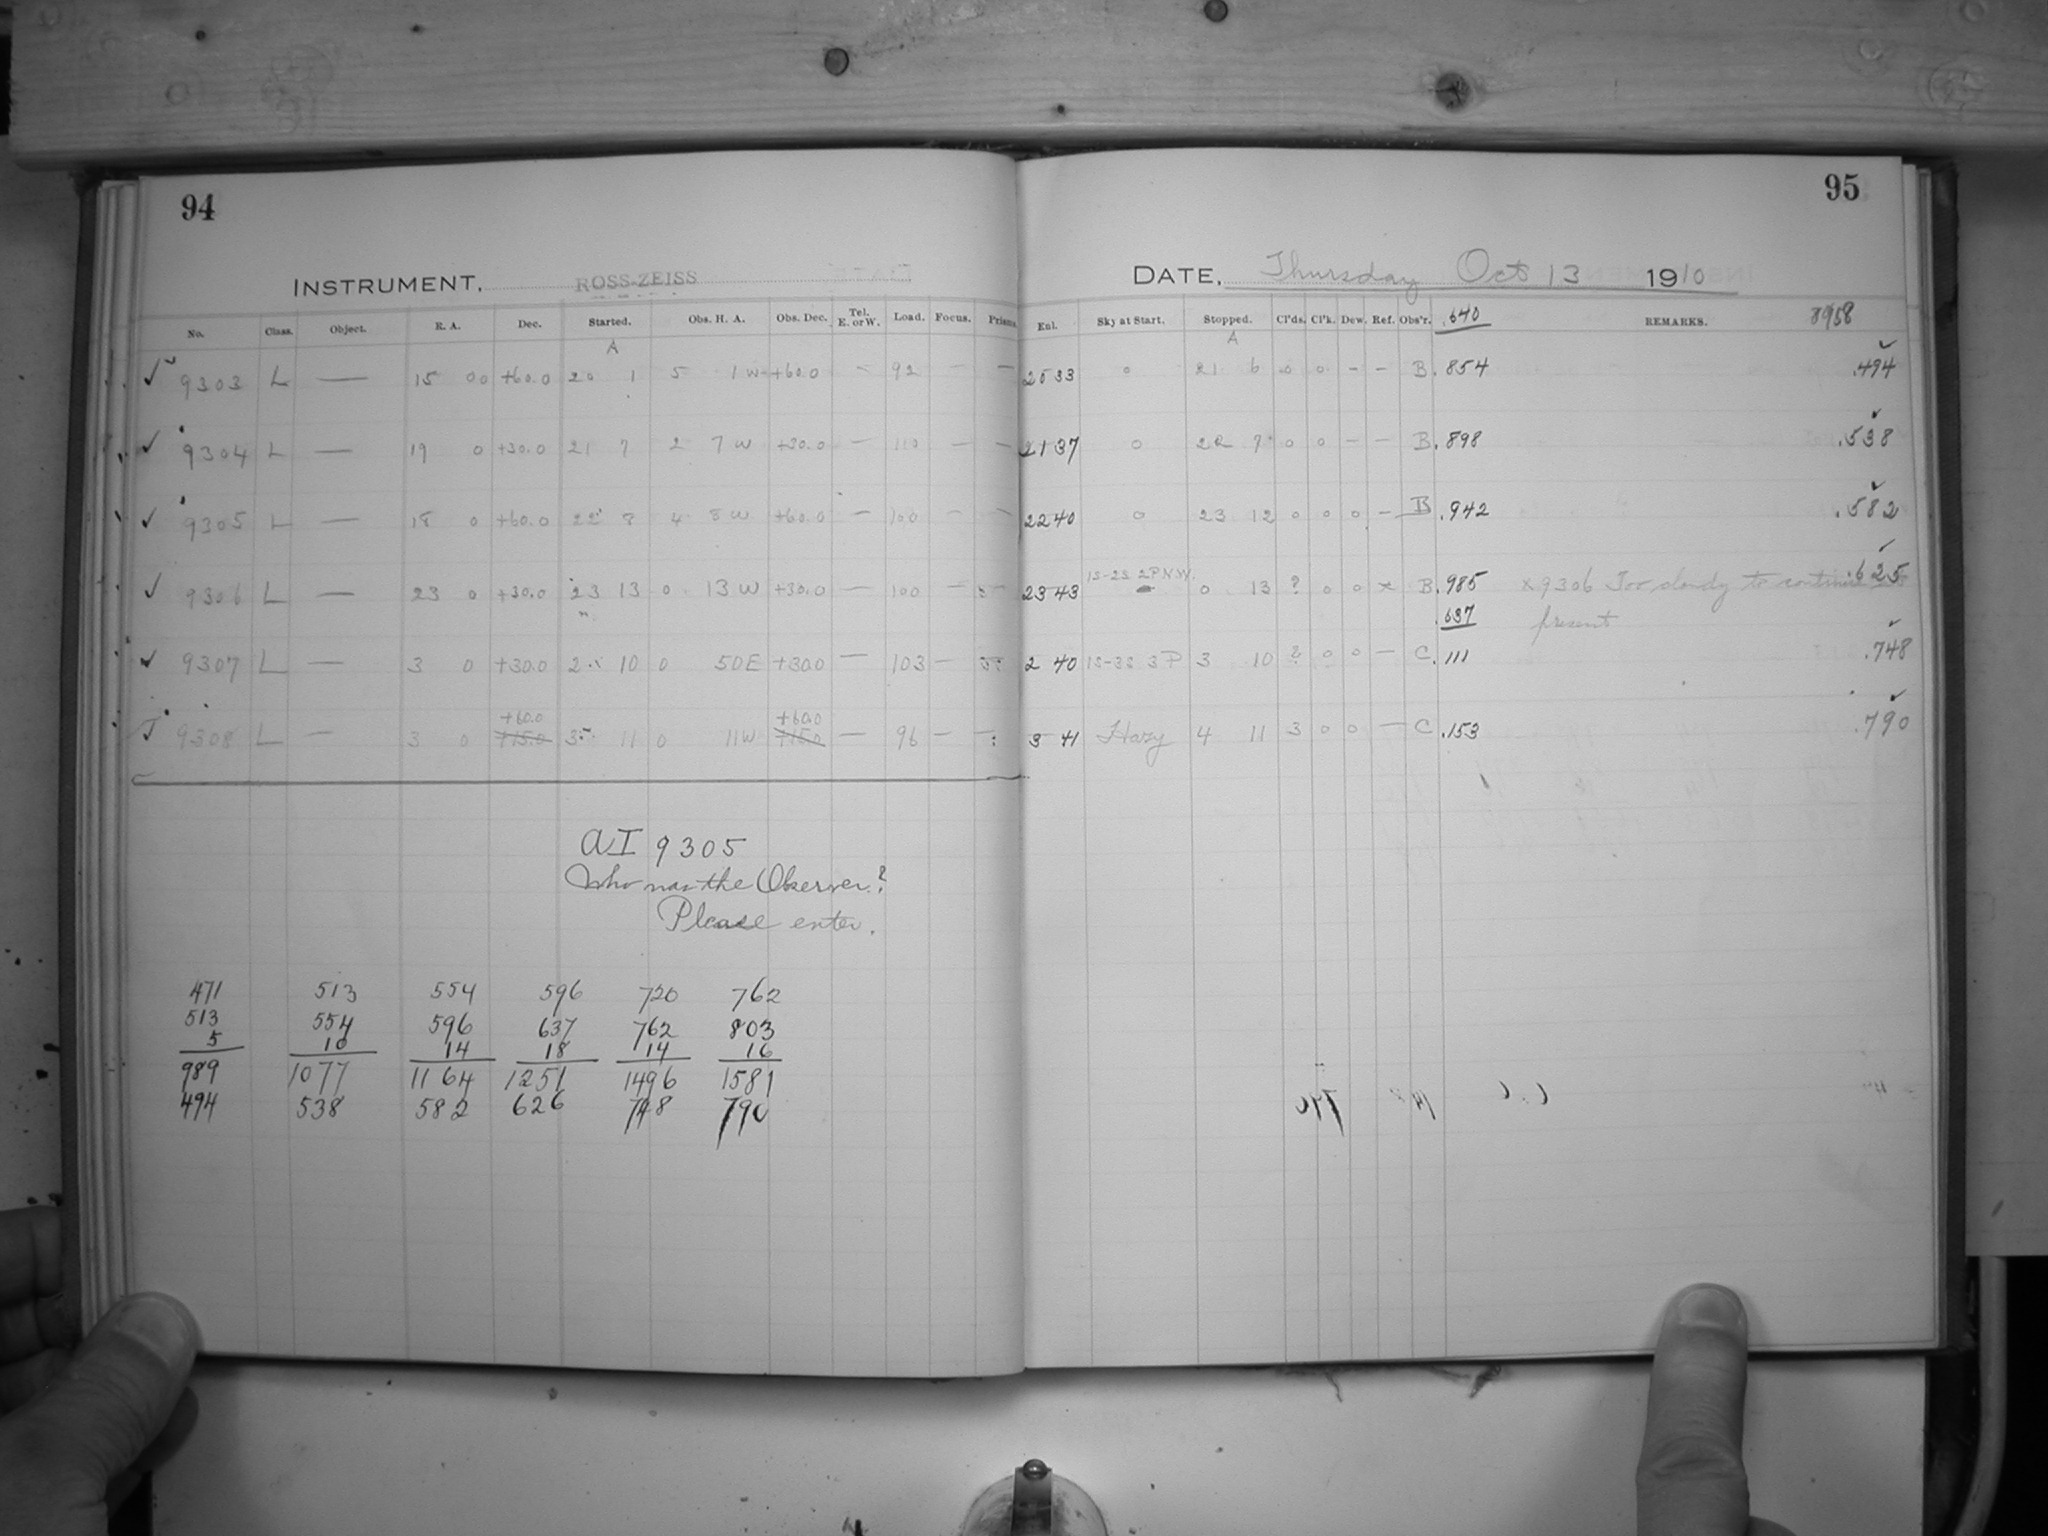 94
INSTRUMENT, ROSS-ZEISS
No. Class. Object. R. A. Dec. Started. Obs. H. A. Obs. Dec. Tel. E. or W. Load. Focus. Prisms
A
✓ 9303 L — 15 00 +60.0 20 1 5 1 W +60.0 — 92 — —
✓ 9304 L — 19 0 +30.0 21 7 2 7 W +30.0 — 110 — —
✓ 9305 L — 18 0 +60.0 22 8 4 8 W +60.0 — 100 — —
✓ 9306 L — 23 0 +30.0 23 13 0 13 W +30.0 — 100 —
✓ 9307 L — 3 0 +30.0 2 10 0 50 E +30.0 — 103 —
+60.0 +60.0
✓ 9308 L — 3 0 +15.0 3 11 0 11 W +15.0 — 96 —
AI 9305
Who was the Observer?
Please enter.
471 513 554 596 720 762
513 554 596 637 762 803
5 10 14 18 14 16
989 1077 1164 1251 1496 1581
494 538 582 626 748 790
95
DATE, Thursday Oct 13 1910
Exl. Sky at Start. Stopped. Cl'ds. Cl'k. Dew. Ref. Obs'r. .640 REMARKS. 8958
A
0 21 6 0 0 — — B .854 .494
21 37 0 22 7 0 0 — — B .898 .538
22 40 0 23 12 0 0 0 — B .942 .582
1S-2S 2P N.W.
23 43 0 13 ? 0 0 x B .985 x 9306 Too cloudy to continue .625
.637 present
2 40 1S-3S 3P 3 10 ? 0 0 — C .111 .748
3 41 Hazy 4 11 3 0 0 — C .153 .790